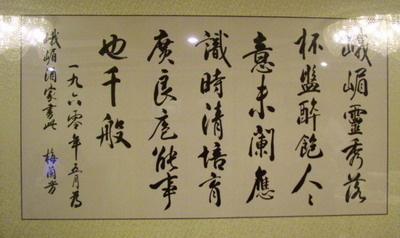 峨嵋靈秀落
杯盤醉飽人々
意未闌應
識時清培育
廣良庖能事
也千般
一九六零年五月為
峨嵋酒家書此 梅蘭芳